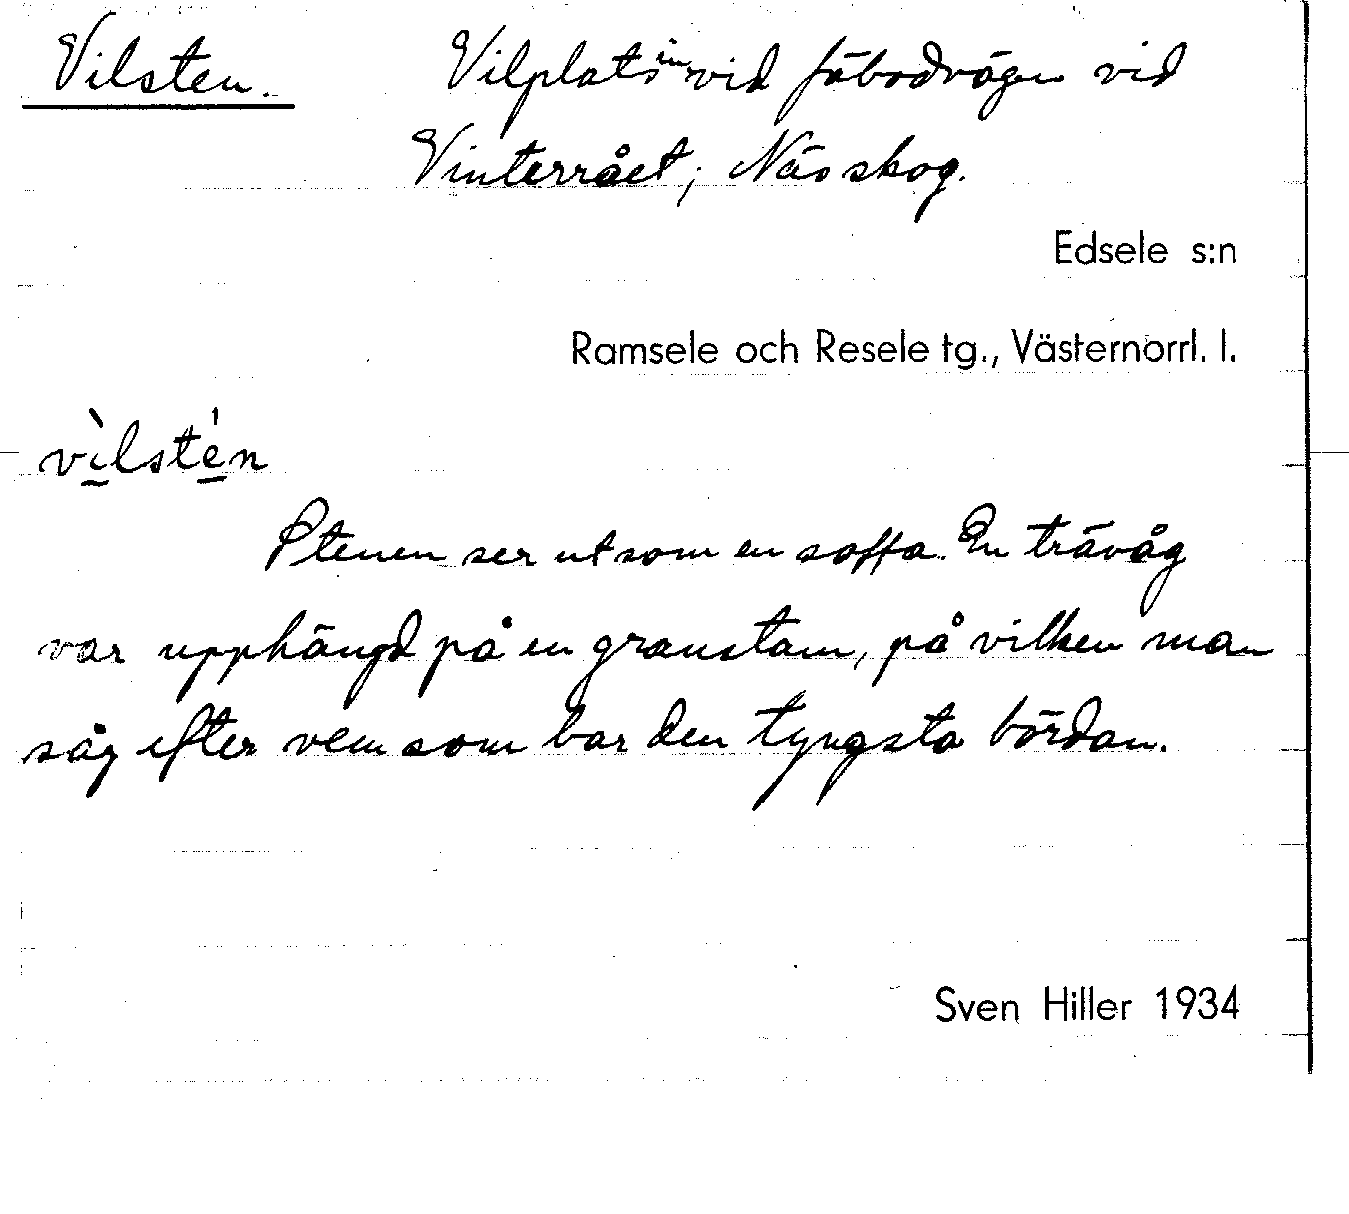 Vilsten. Vilplats vid fäbodvägen vid
Vinterrået, Näs skog.
Edsele s:n
Ramsele och Resele tg., Västernorrl. l.
vìlstén
Stenen ser ut som en soffa. En trävåg
var upphängd på en granstam, på vilken man
såg efter vem som bar den tyngsta bördan.
Sven Hiller 1934